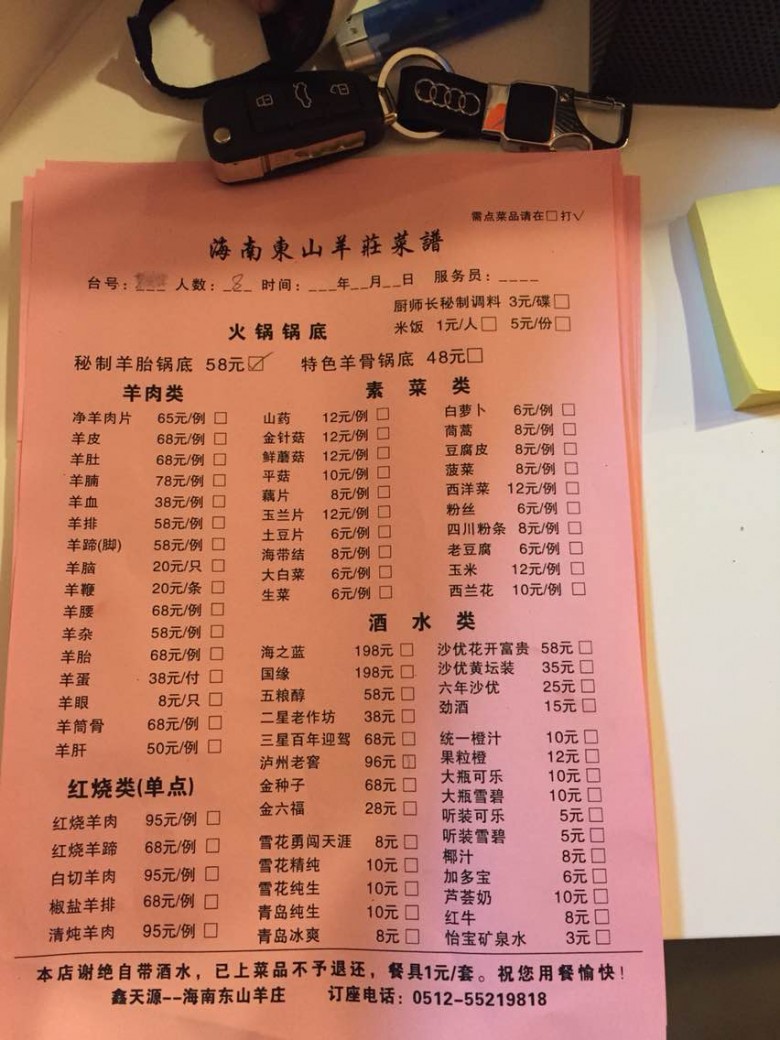 需点菜品请在□打√
海南東山羊莊菜譜
台号：___ 人数：_8_ 时间：___年__月__日 服务员：____
厨师长秘制调料 3元/碟□
米饭 1元/人□ 5元/份□
火锅锅底
秘制羊胎锅底 58元☑ 特色羊骨锅底 48元□
羊肉类
净羊肉片 65元/例 □
羊皮 68元/例 □
羊肚 68元/例 □
羊腩 78元/例 □
羊血 38元/例 □
羊排 58元/例 □
羊蹄(脚) 58元/例 □
羊脑 20元/只 □
羊鞭 20元/条 □
羊腰 68元/例 □
羊杂 58元/例 □
羊胎 68元/例 □
羊蛋 38元/付 □
羊眼 8元/只 □
羊筒骨 68元/例 □
羊肝 50元/例 □
红烧类(单点)
红烧羊肉 95元/例 □
红烧羊蹄 68元/例 □
白切羊肉 95元/例 □
椒盐羊排 68元/例 □
清炖羊肉 95元/例 □
素菜类
山药 12元/例 □
金针菇 12元/例 □
鲜蘑菇 12元/例 □
平菇 10元/例 □
藕片 8元/例 □
玉兰片 12元/例 □
土豆片 6元/例 □
海带结 8元/例 □
大白菜 6元/例 □
生菜 6元/例 □
白萝卜 6元/例 □
茼蒿 8元/例 □
豆腐皮 8元/例 □
菠菜 8元/例 □
西洋菜 12元/例 □
粉丝 6元/例 □
四川粉条 8元/例 □
老豆腐 6元/例 □
玉米 12元/例 □
西兰花 10元/例 □
酒水类
海之蓝 198元 □
国缘 198元 □
五粮醇 58元 □
二星老作坊 38元 □
三星百年迎驾 68元 □
泸州老窖 96元 □
金种子 68元 □
金六福 28元 □
雪花勇闯天涯 8元 □
雪花精纯 10元 □
雪花纯生 10元 □
青岛纯生 10元 □
青岛冰爽 8元 □
沙优花开富贵 58元 □
沙优黄坛装 35元 □
六年沙优 25元 □
劲酒 15元 □
统一橙汁 10元 □
果粒橙 12元 □
大瓶可乐 10元 □
大瓶雪碧 10元 □
听装可乐 5元 □
听装雪碧 5元 □
椰汁 8元 □
加多宝 6元 □
芦荟奶 10元 □
红牛 8元 □
怡宝矿泉水 3元 □
本店谢绝自带酒水，已上菜品不予退还，餐具1元/套。祝您用餐愉快！
鑫天源--海南东山羊庄 订座电话：0512-55219818